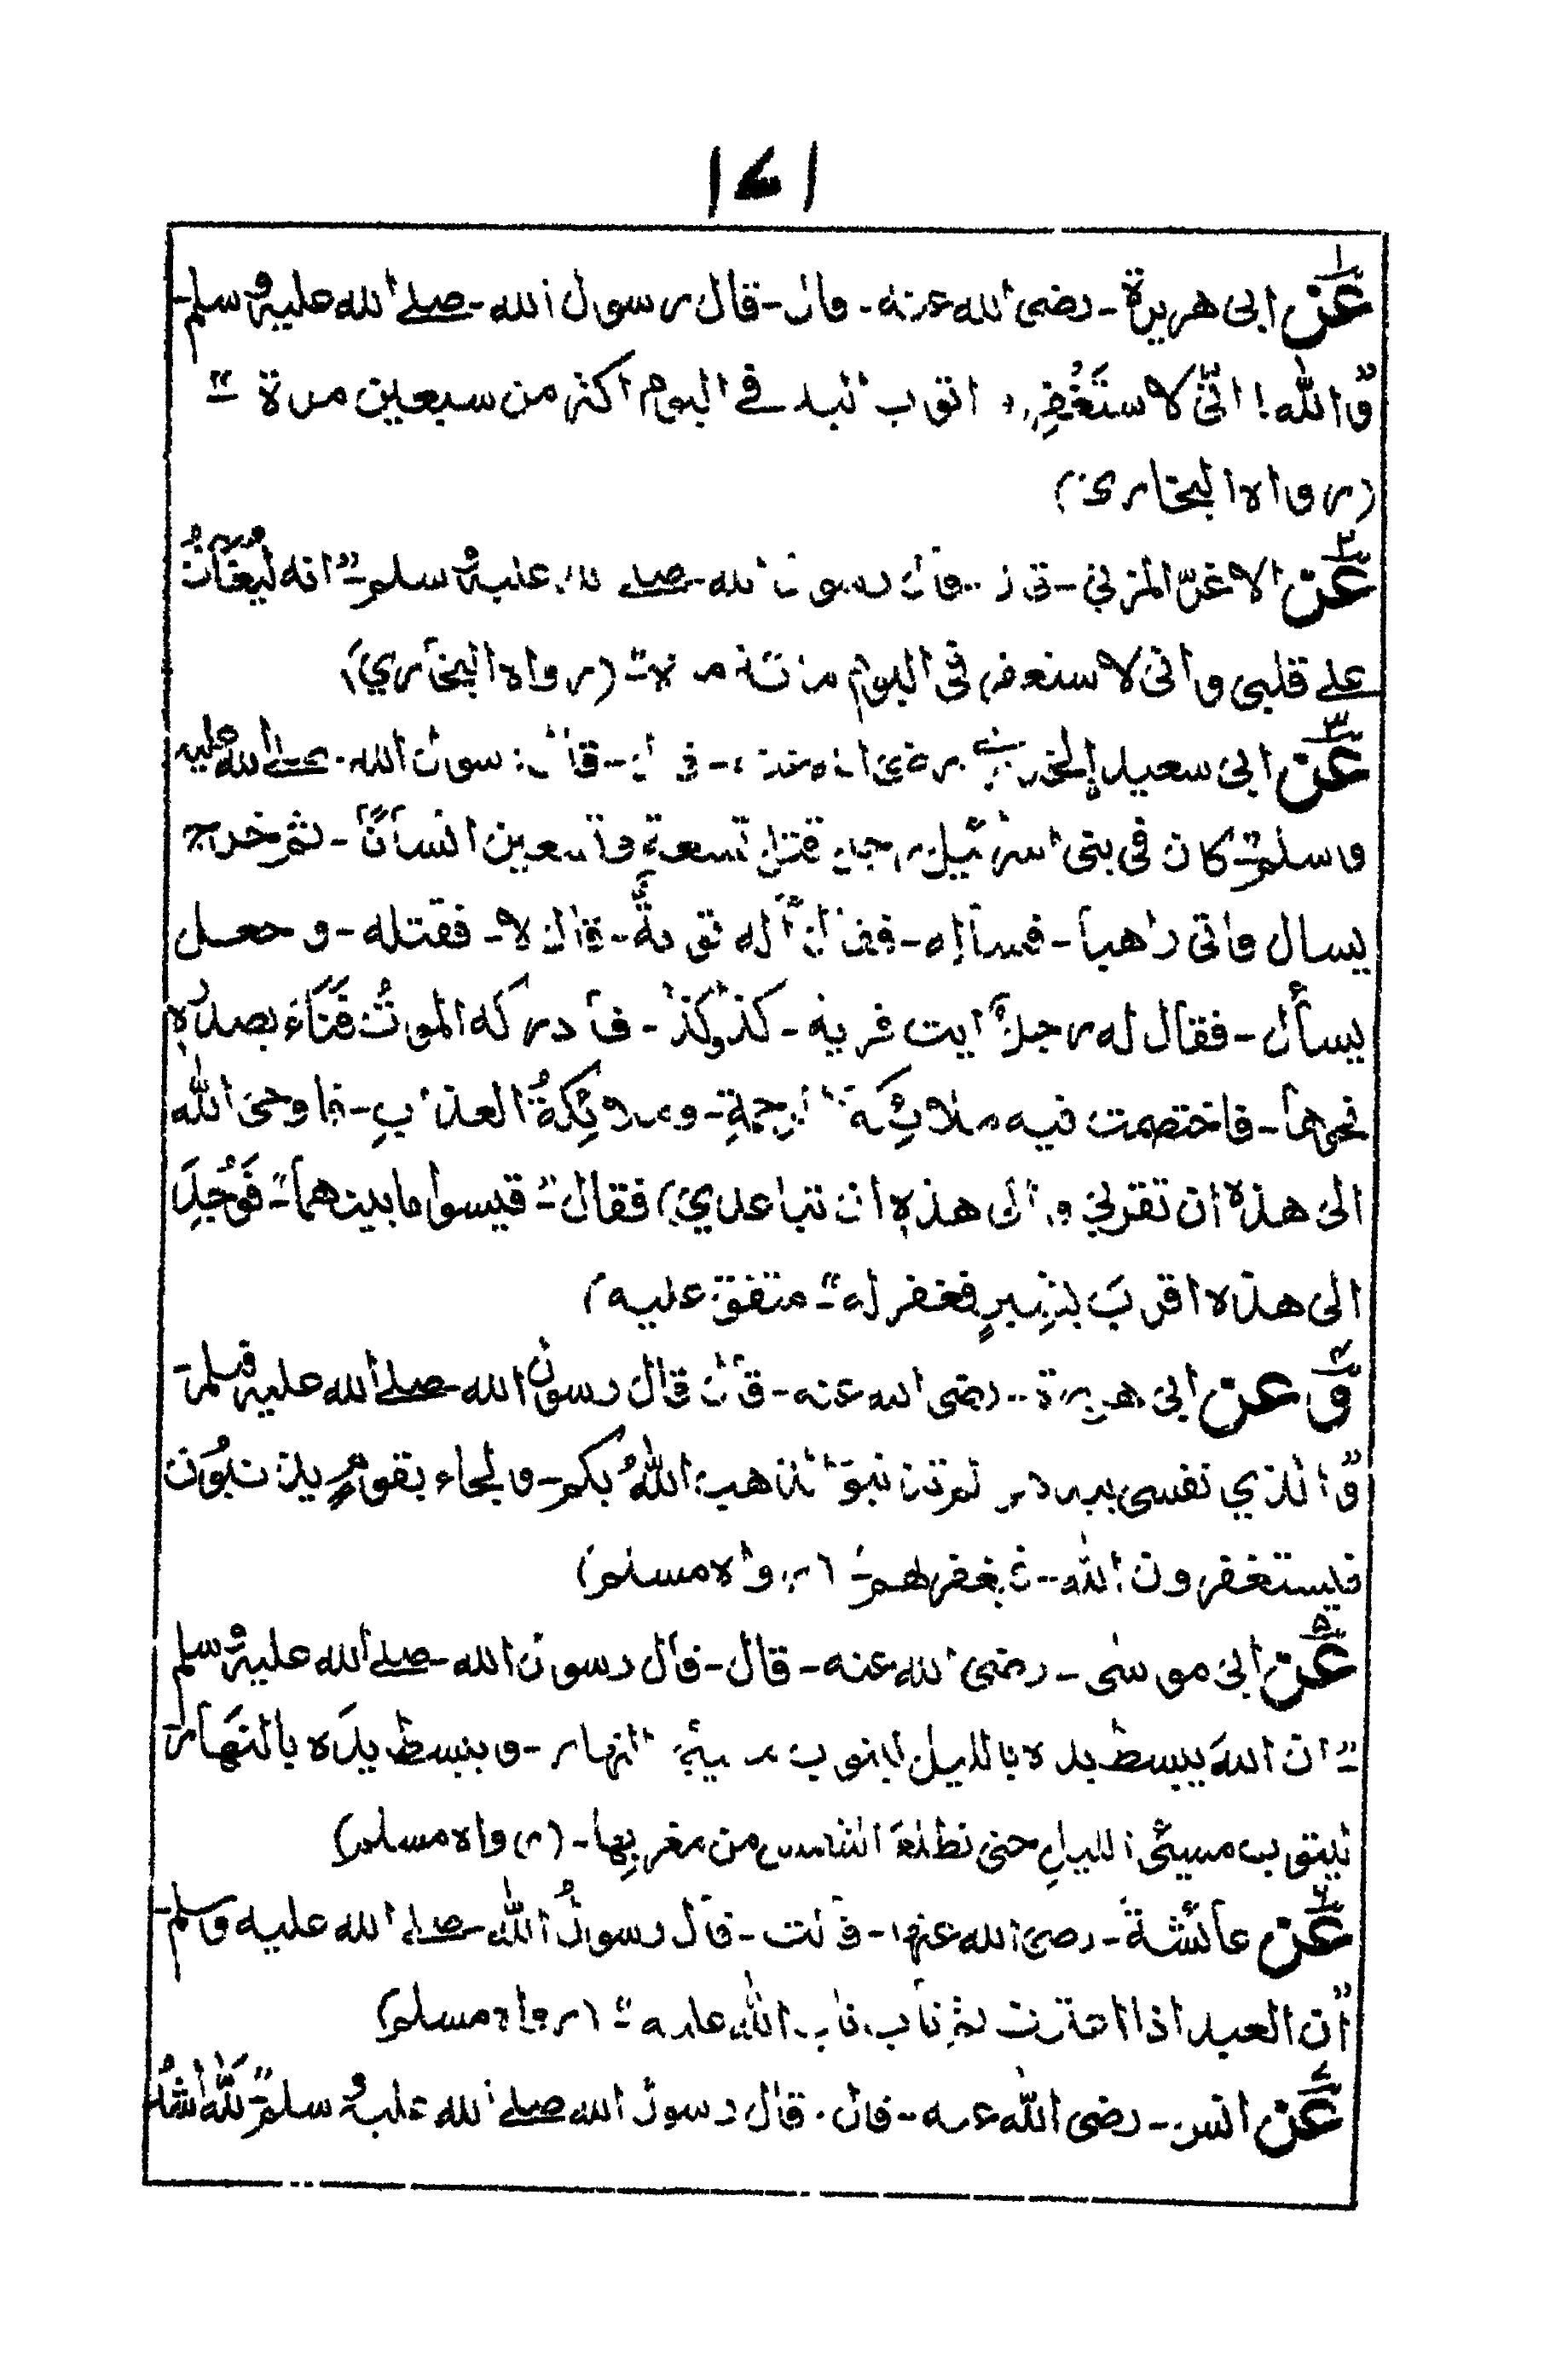 ۱۷۱
۱ عَن ابی هريرة - رضی الله عنه - قال - قال رسول الله - صلے الله عليه و سلم -
"وَالله! انّی لاستَغْفِر و اتوب اليه فے اليوم اکثر من سبعين مرة"
(رواه البخاری)
۲ عَن الاغرّ المزنی - قال - قال رسول الله - صلے الله عليه وسلم - "انه لَيُغَانُ
علے قلبی وانی لاستغفر فی اليوم مائة مرة" (رواه البخاري)
۳ عَن ابی سعيد الخدری رضی الله عنه - قال - قال رسول الله - صلے الله عليه
وسلم - "کان فی بنی اسرائيل رجل قتل تسعة وتسعين انساناً - ثم خرج
يسال فاتی راهباً - فسأله - فقال أله توبةٌ - قال لا - فقتله - وجعل
يسأل - فقال له رجلٌ ايت قرية - کذا وکذا - فأدرکه الموتُ فَنَاءَ بصدرِه
نحوها - فاختصمت فيه ملائِکَة الرحمةِ - وملائِکةُ العذابِ - فاوحی الله
الی هذه ان تقربی و الی هذه ان تباعدي) فقال "قيسوا ما بينهما" - فَوُجِدَ
الی هذه اقربَ بشبرٍ فغفر له" - متفق عليه)
۴ وَ عن ابی هريرة - رضی الله عنه - قال قال رسول الله صلے الله عليه وسلم -
"وَالذي نفسی بيده لو لم تذنبوا لذهب اللهُ بکم - ولجاء بقومٍ يذنبُون
فيستغفرون الله - فيغفر لهم" (رواه مسلم)
۵ عَن ابی موسٰی - رضی الله عنه - قال - قال رسول الله - صلے الله عليه وسلم
"ان اللهَ يبسط يده بالليل ليتوب مسيئ النهار - و يبسط يدَه بالنهَار
ليتوب مسيئی الليلِ حتی تطلعَ الشمس من مغربِها - (رواه مسلم)
۶ عَن عائشةَ - رضی الله عنها - قالت - قال رسولُ الله - صلے الله عليه وسلم -
"اِن العبد اذا اعترف ثم تاب، تاب الله عليه" (رواه مسلم)
۷ عَن انس - رضی الله عنه - قال - قال رسول الله صلے الله عليه و سلم "لَلّٰهُ أشدُّ